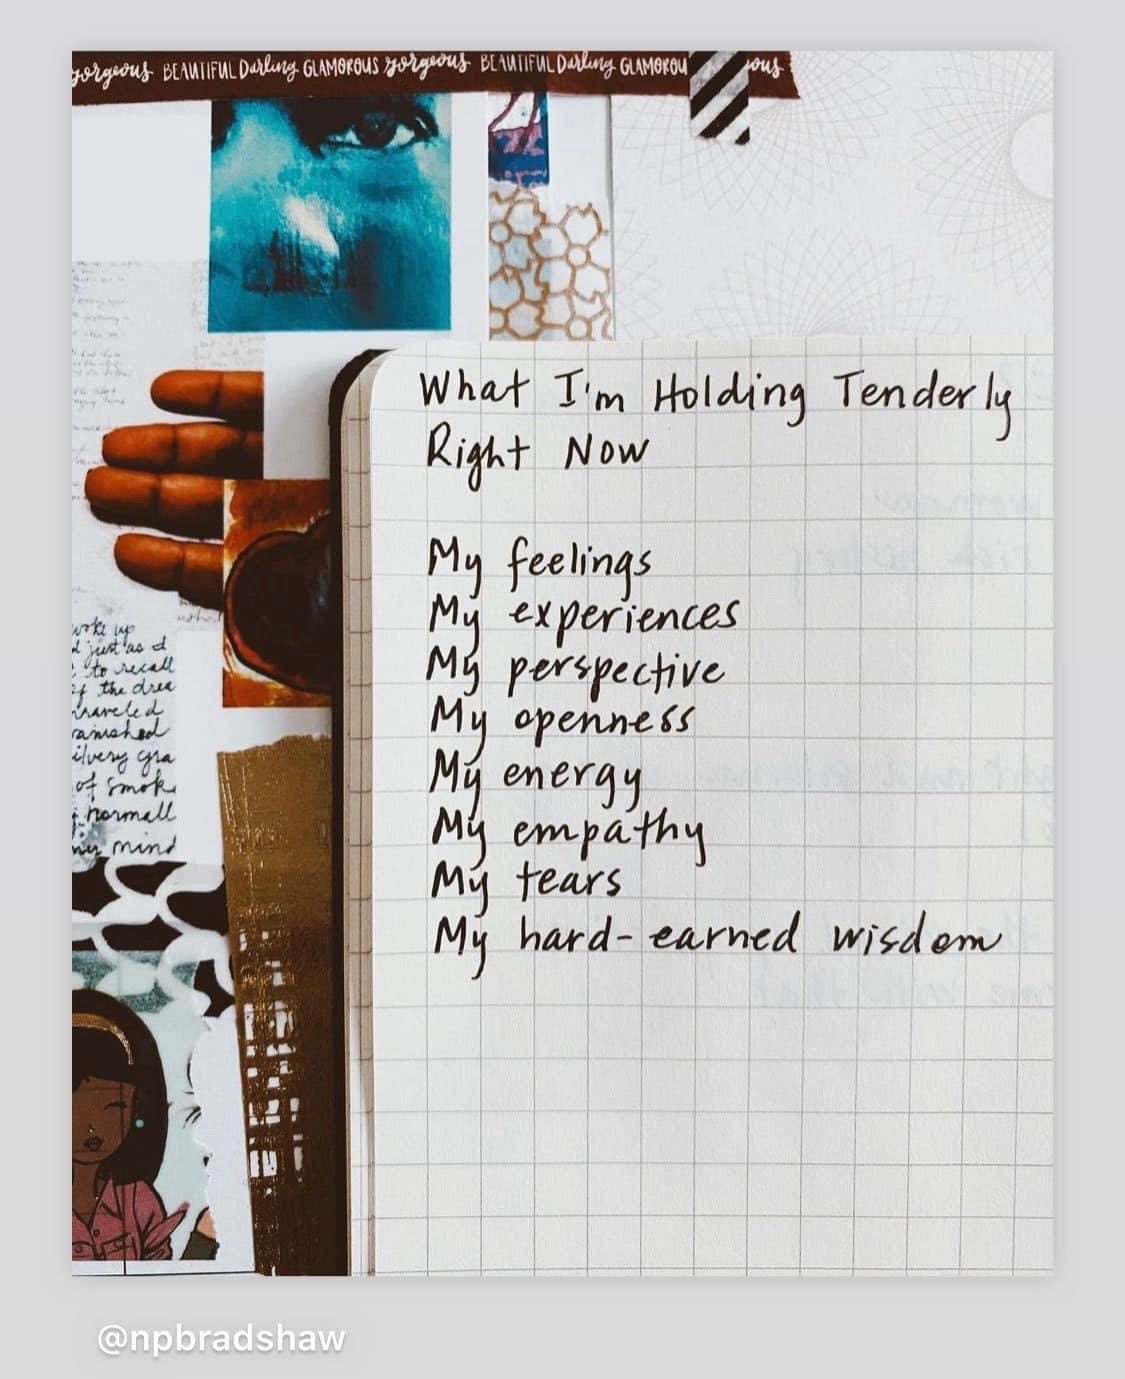 gorgeous BEAUTIFUL Darling GLAMOROUS gorgeous BEAUTIFUL Darling GLAMOROU ous
What I'm Holding Tenderly
Right Now
My feelings
My experiences
My perspective
My openness
My energy
My empathy
My tears
My hard-earned wisdom
woke up
just as I
to recall
of the drea
traveled
vanished
ilvery gra
of smok
normall
my mind
@npbradshaw